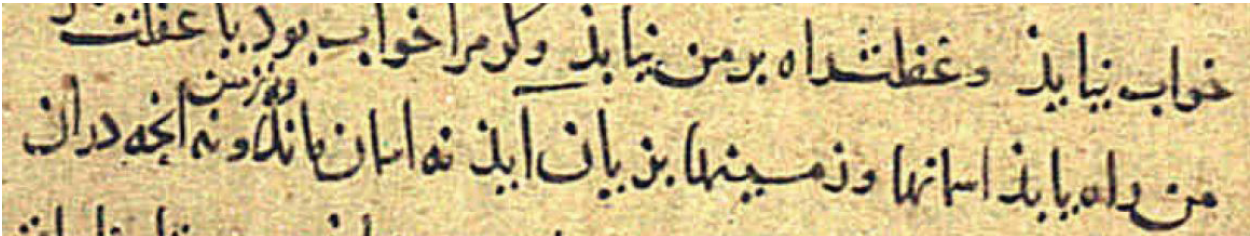 خواب نیایذ و غفلت راه بر من نیابذ و کر مرا خواب بوذ یا غفلت
من راه یابذ اسمانها و زمینها بزیان آیذ نه اسمان ماند و نه زمین و نه انچه در ان